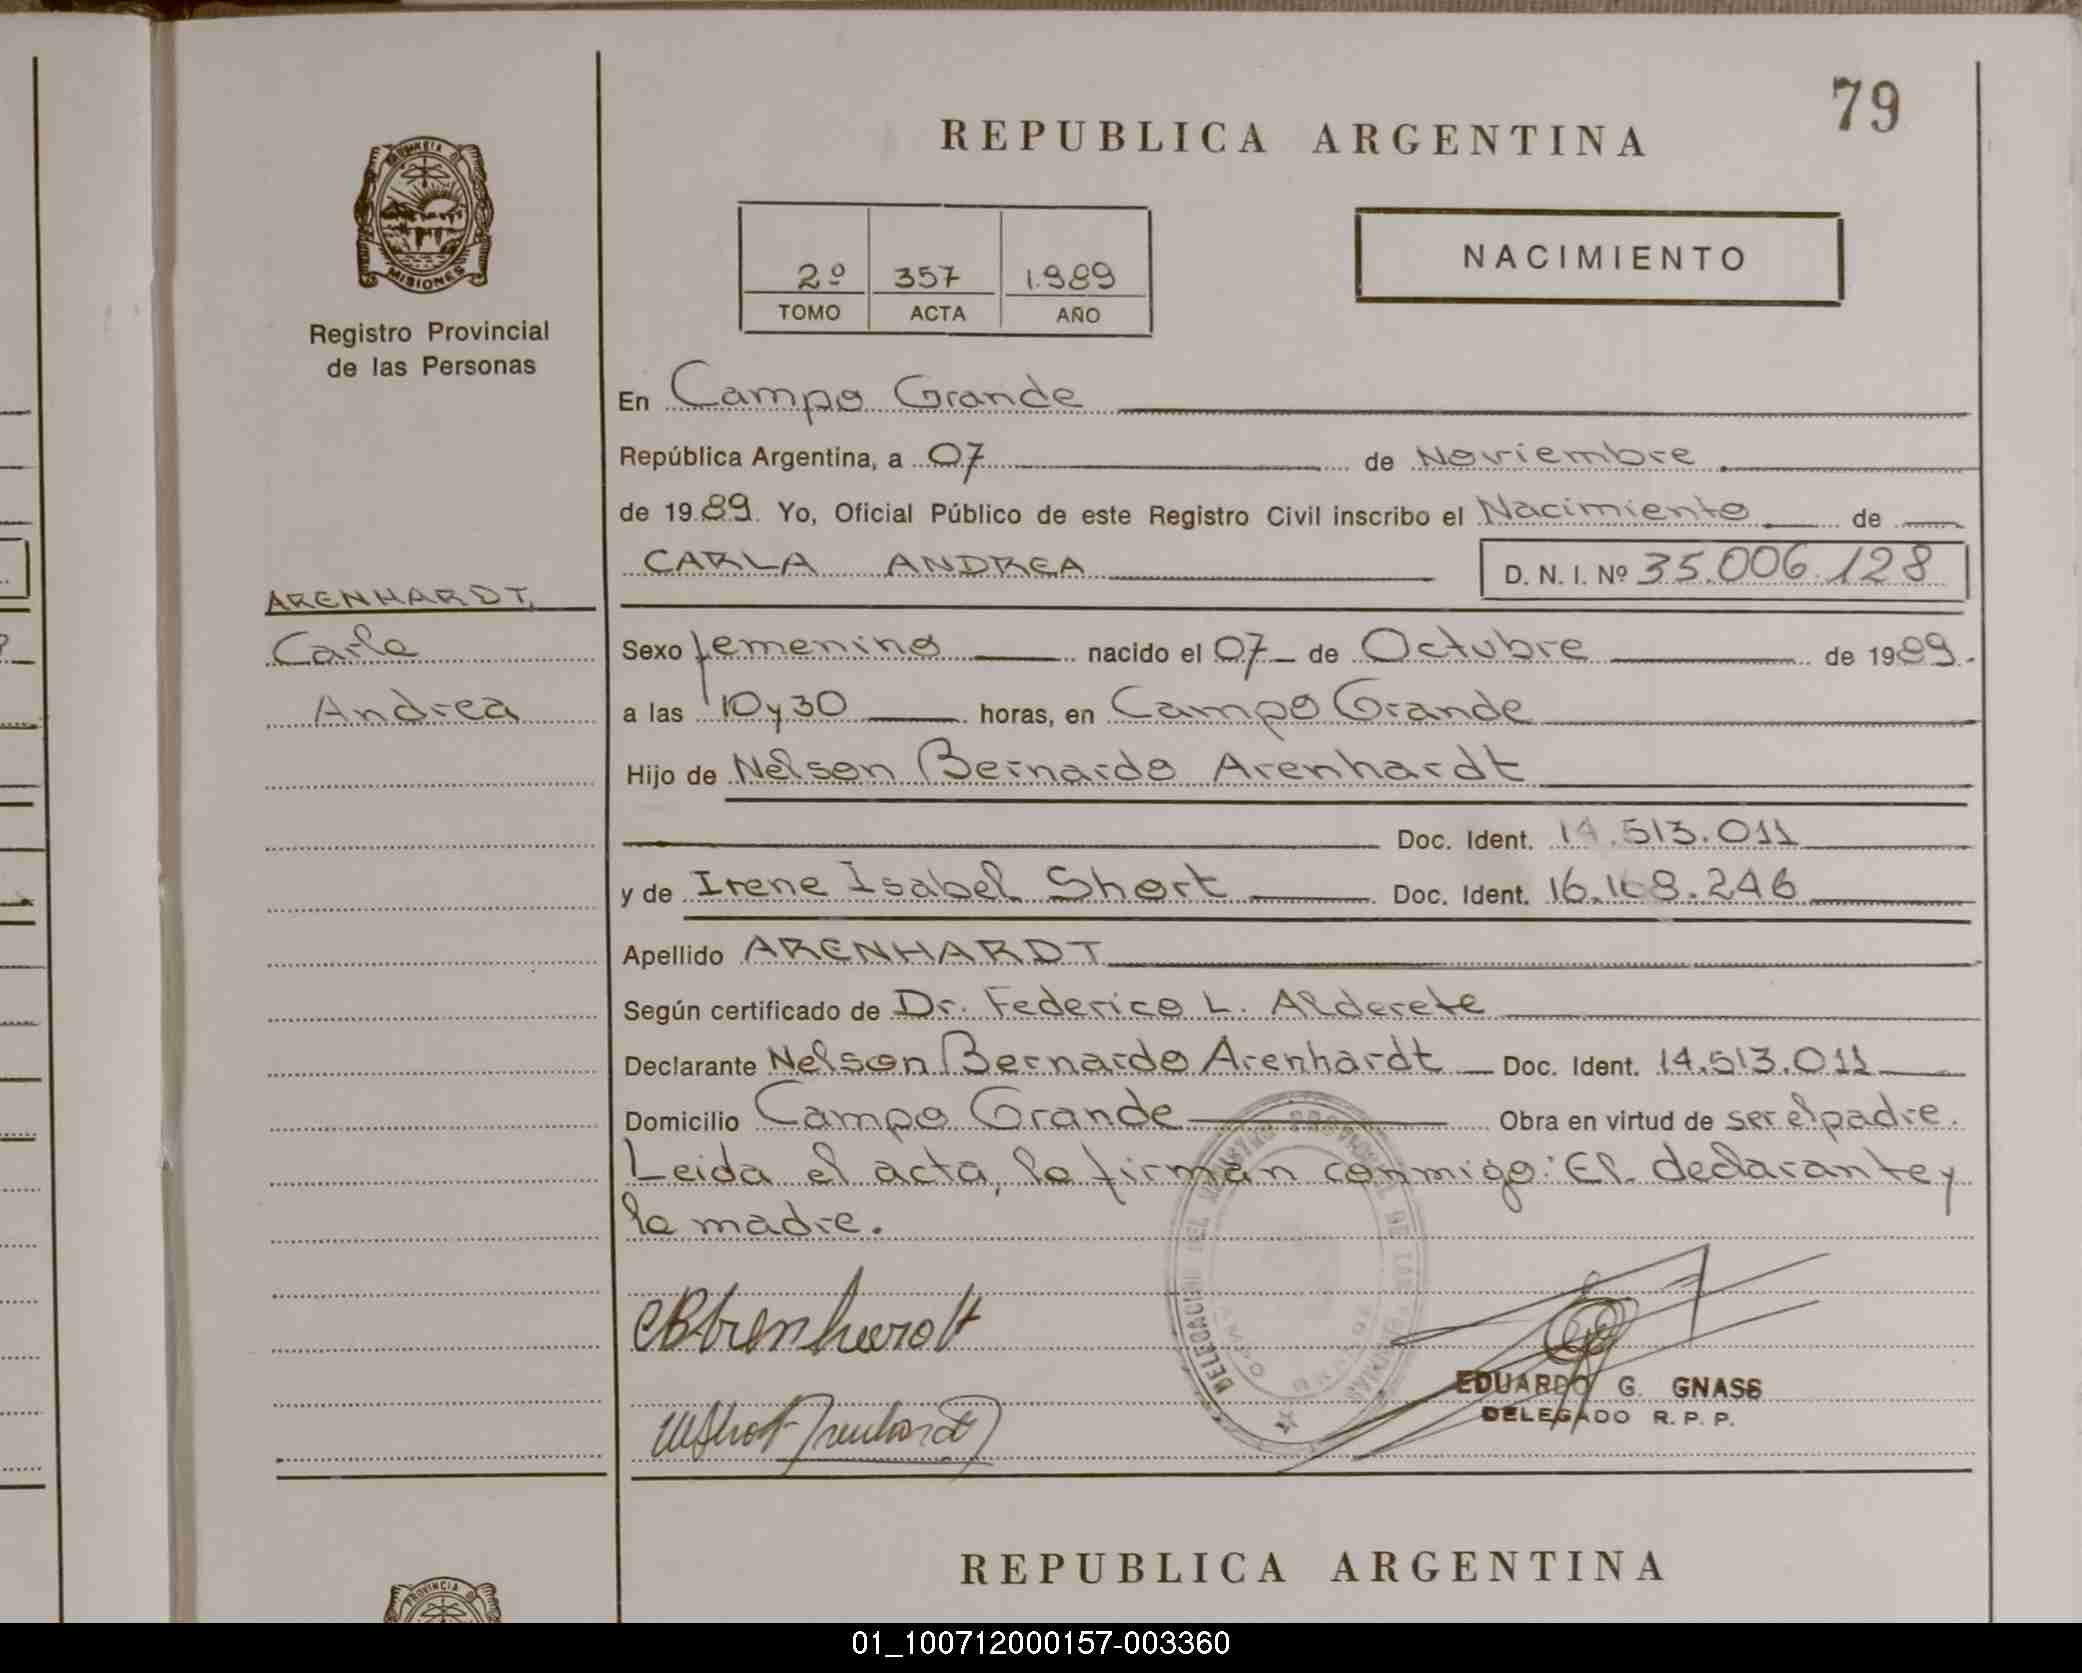 79
REPUBLICA ARGENTINA
PROVINCIA DE
MISIONES
Registro Provincial
de las Personas
2º 357 1.989
TOMO ACTA AÑO
NACIMIENTO
En Campo Grande
República Argentina, a 07 de Noviembre
de 1989. Yo, Oficial Público de este Registro Civil inscribo el Nacimiento de
CARLA ANDREA D. N. I. Nº 35.006.128
ARENHARDT,
Carla
Andrea
Sexo femenino nacido el 07 de Octubre de 1989.
a las 10 y 30 horas, en Campo Grande
Hijo de Nelson Bernardo Arenhardt
Doc. Ident. 14.513.011
y de Irene Isabel Short Doc. Ident. 16.168.246
Apellido ARENHARDT
Según certificado de Dr. Federico L. Alderete
Declarante Nelson Bernardo Arenhardt Doc. Ident. 14.513.011
Domicilio Campo Grande Obra en virtud de ser el padre.
Leida el acta, la firman conmigo: El declarante y
la madre.
DELEGACION DEL REGISTRO PROVINCIAL DE LAS PERSONAS
CAMPO GRANDE
EDUARDO G. GNASS
DELEGADO R. P. P.
REPUBLICA ARGENTINA
PROVINCIA D
01_100712000157-003360